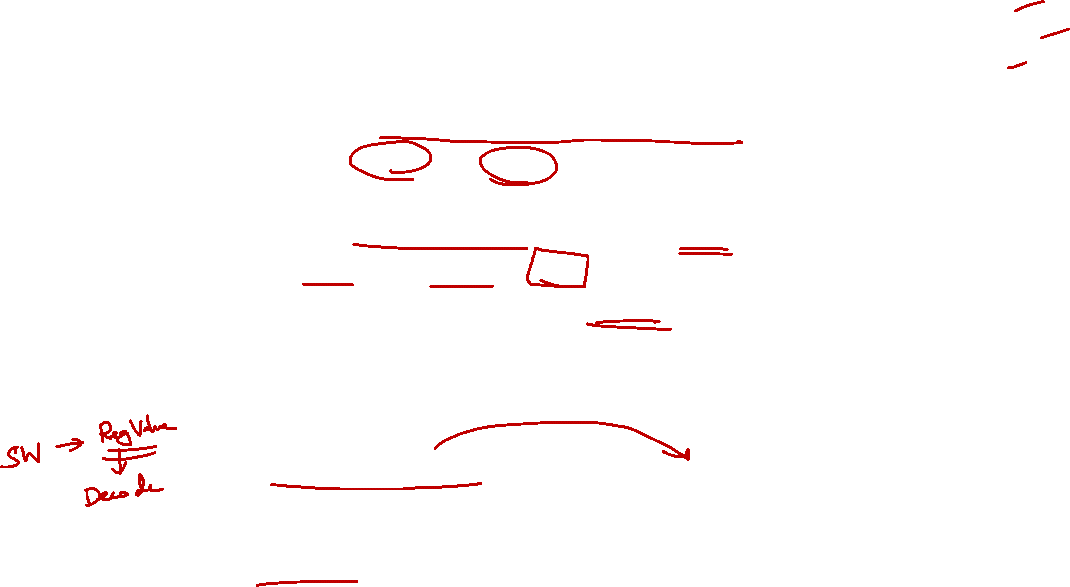 SW → Reg Value
↓
Decode